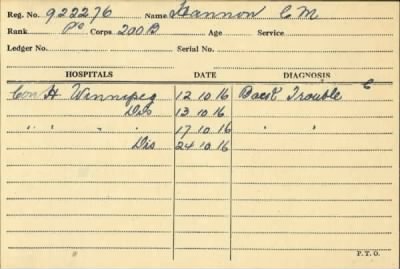 Reg. No. 922276 Name Gannon C M
Rank Pte Corps 200 B Age Service
Ledger No. Serial No.
HOSPITALS DATE DIAGNOSIS
Con H. Winnipeg 12.10.16 Back Trouble C
Dis 13.10.16
" " " 17.10.16 "
Dis 24.10.16
P.T.O.